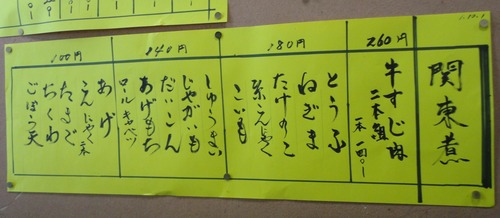 関東煮
260円
牛すじ肉
二本組
一本一四〇一
180円
とうふ
ねぎま
たけのこ
糸こんにゃく
こいも
140円
しゅうまい
じゃがいも
だいこん
あげもち
ロールキャベツ
100円
あげ
こんにゃく二本
たまご
ちくわ
ごぼう天